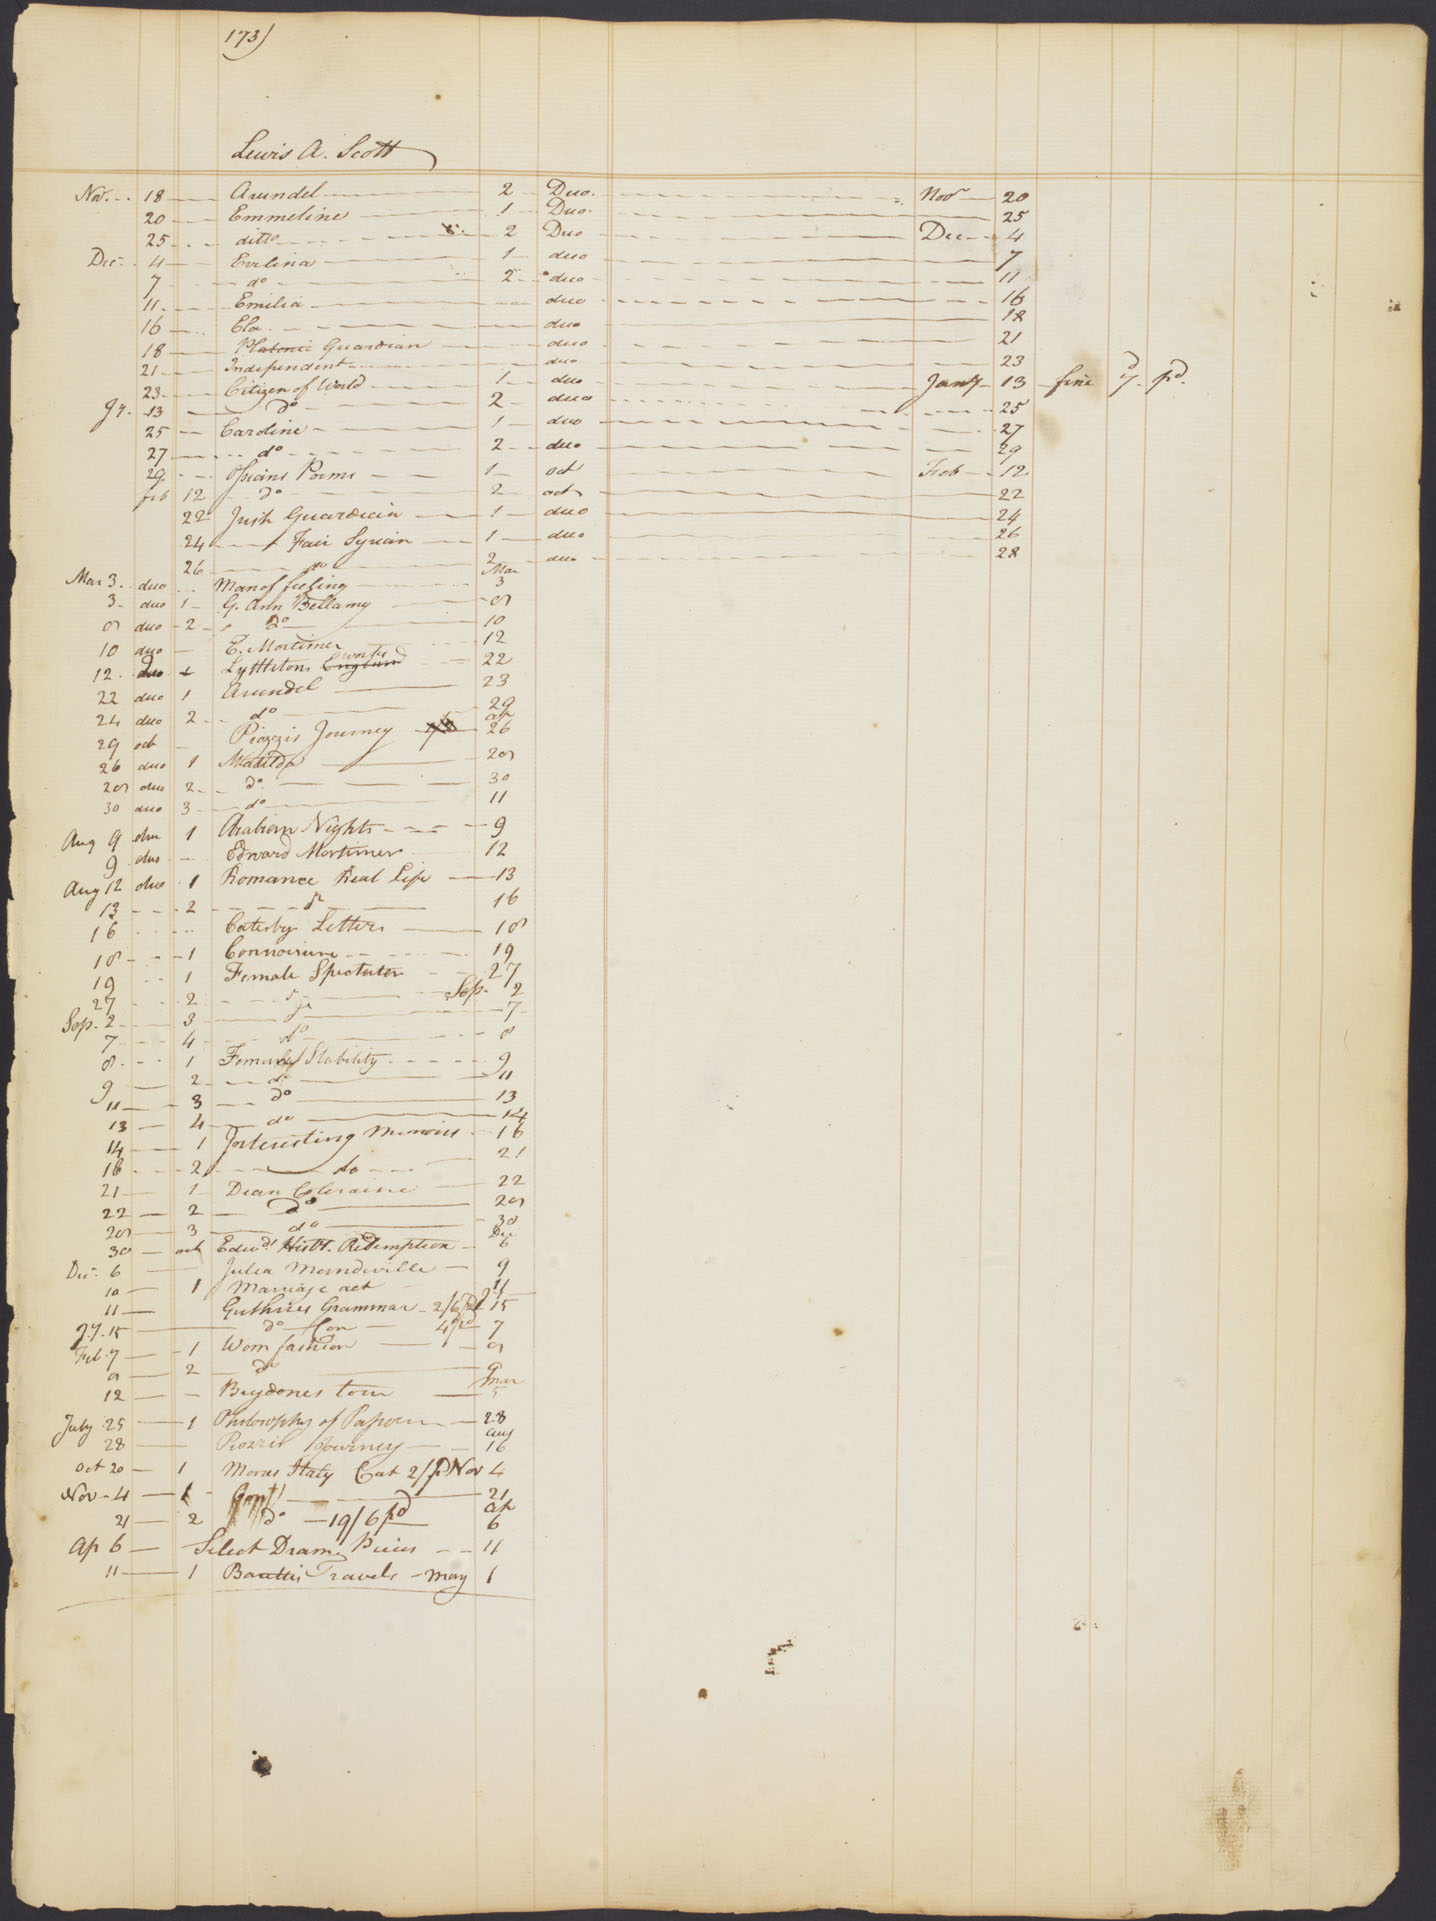 173)
Lewis A. Scott
Nov. 18 Arundel 2 Duo. Nov 20
20 Emmeline 1 Duo. 25
25 ditto 2 Duo Dec 4
Dec. 4 Evelina 1 duo 7
7 do 2 duo 11
11 Emilia duo 16
16 Ela duo 18
18 Platonic Guardian duo 21
21 Independent duo 23
23 Citizen of World 1 duo Jany 13 fine 7d pd.
Jy. 13 do 2 duo 25
25 Caroline 1 duo 27
27 do 2 duo 29
29 Ossians Poems 1 oct Feb 12
feb 12 do 2 oct 22
22 Irish Guardian 1 duo 24
24 Fair Syrian 1 duo 26
26 do 2 duo 28
Mar 3. duo Man of feeling Mar 3
3 duo 1 G. Ann Bellamy 8
8 duo 2 do 10
10 duo E. Mortimer 12
12 duo Lyttletons England works 22
22 duo 1 Arundel 23
24 duo 2 do 29
29 oct Piozzis Journey ap 26
26 duo 1 Matilda 28
28 duo 2 do 30
30 duo 3 do 11
Aug 9 duo 1 Arabian Nights 9
9 duo Edward Mortimer 12
Aug 12 duo 1 Romance Real Life 13
13 2 do 16
16 Catesby Letters 18
18 1 Connoisieur 19
19 1 Female Spectator 27
27 2 do Sep. 2
Sep. 2 3 do 7
7 4 do 8
8 1 Female Stability 9
9 2 do 11
11 3 do 13
13 4 do 14
14 1 Interesting Memoirs 16
16 2 do 21
21 1 Dean Coleraine 22
22 2 do 28
28 3 do 30
30 oct Edwds Hist. Redemption Dec 6
Dec. 6 Julia Mandeville 9
10 1 Marriage act 11
11 Guthries Grammar 2/6 pd 15
Jy. 15 do Con 4 pd 7
Feb. 7 1 Wom fashion 8
8 2 do 9
12 Brydones tour Mar 5
July 25 1 Philosophy of 28
28 Piozzis Journey Aug 16
Oct 20 1 Mores Italy Cat 2/ pd Nov 4
Nov 4 1 21
21 2 do 19/6 pd ap 6
Ap 6 Select Dram. Pieces 11
11 1 Travels May 1